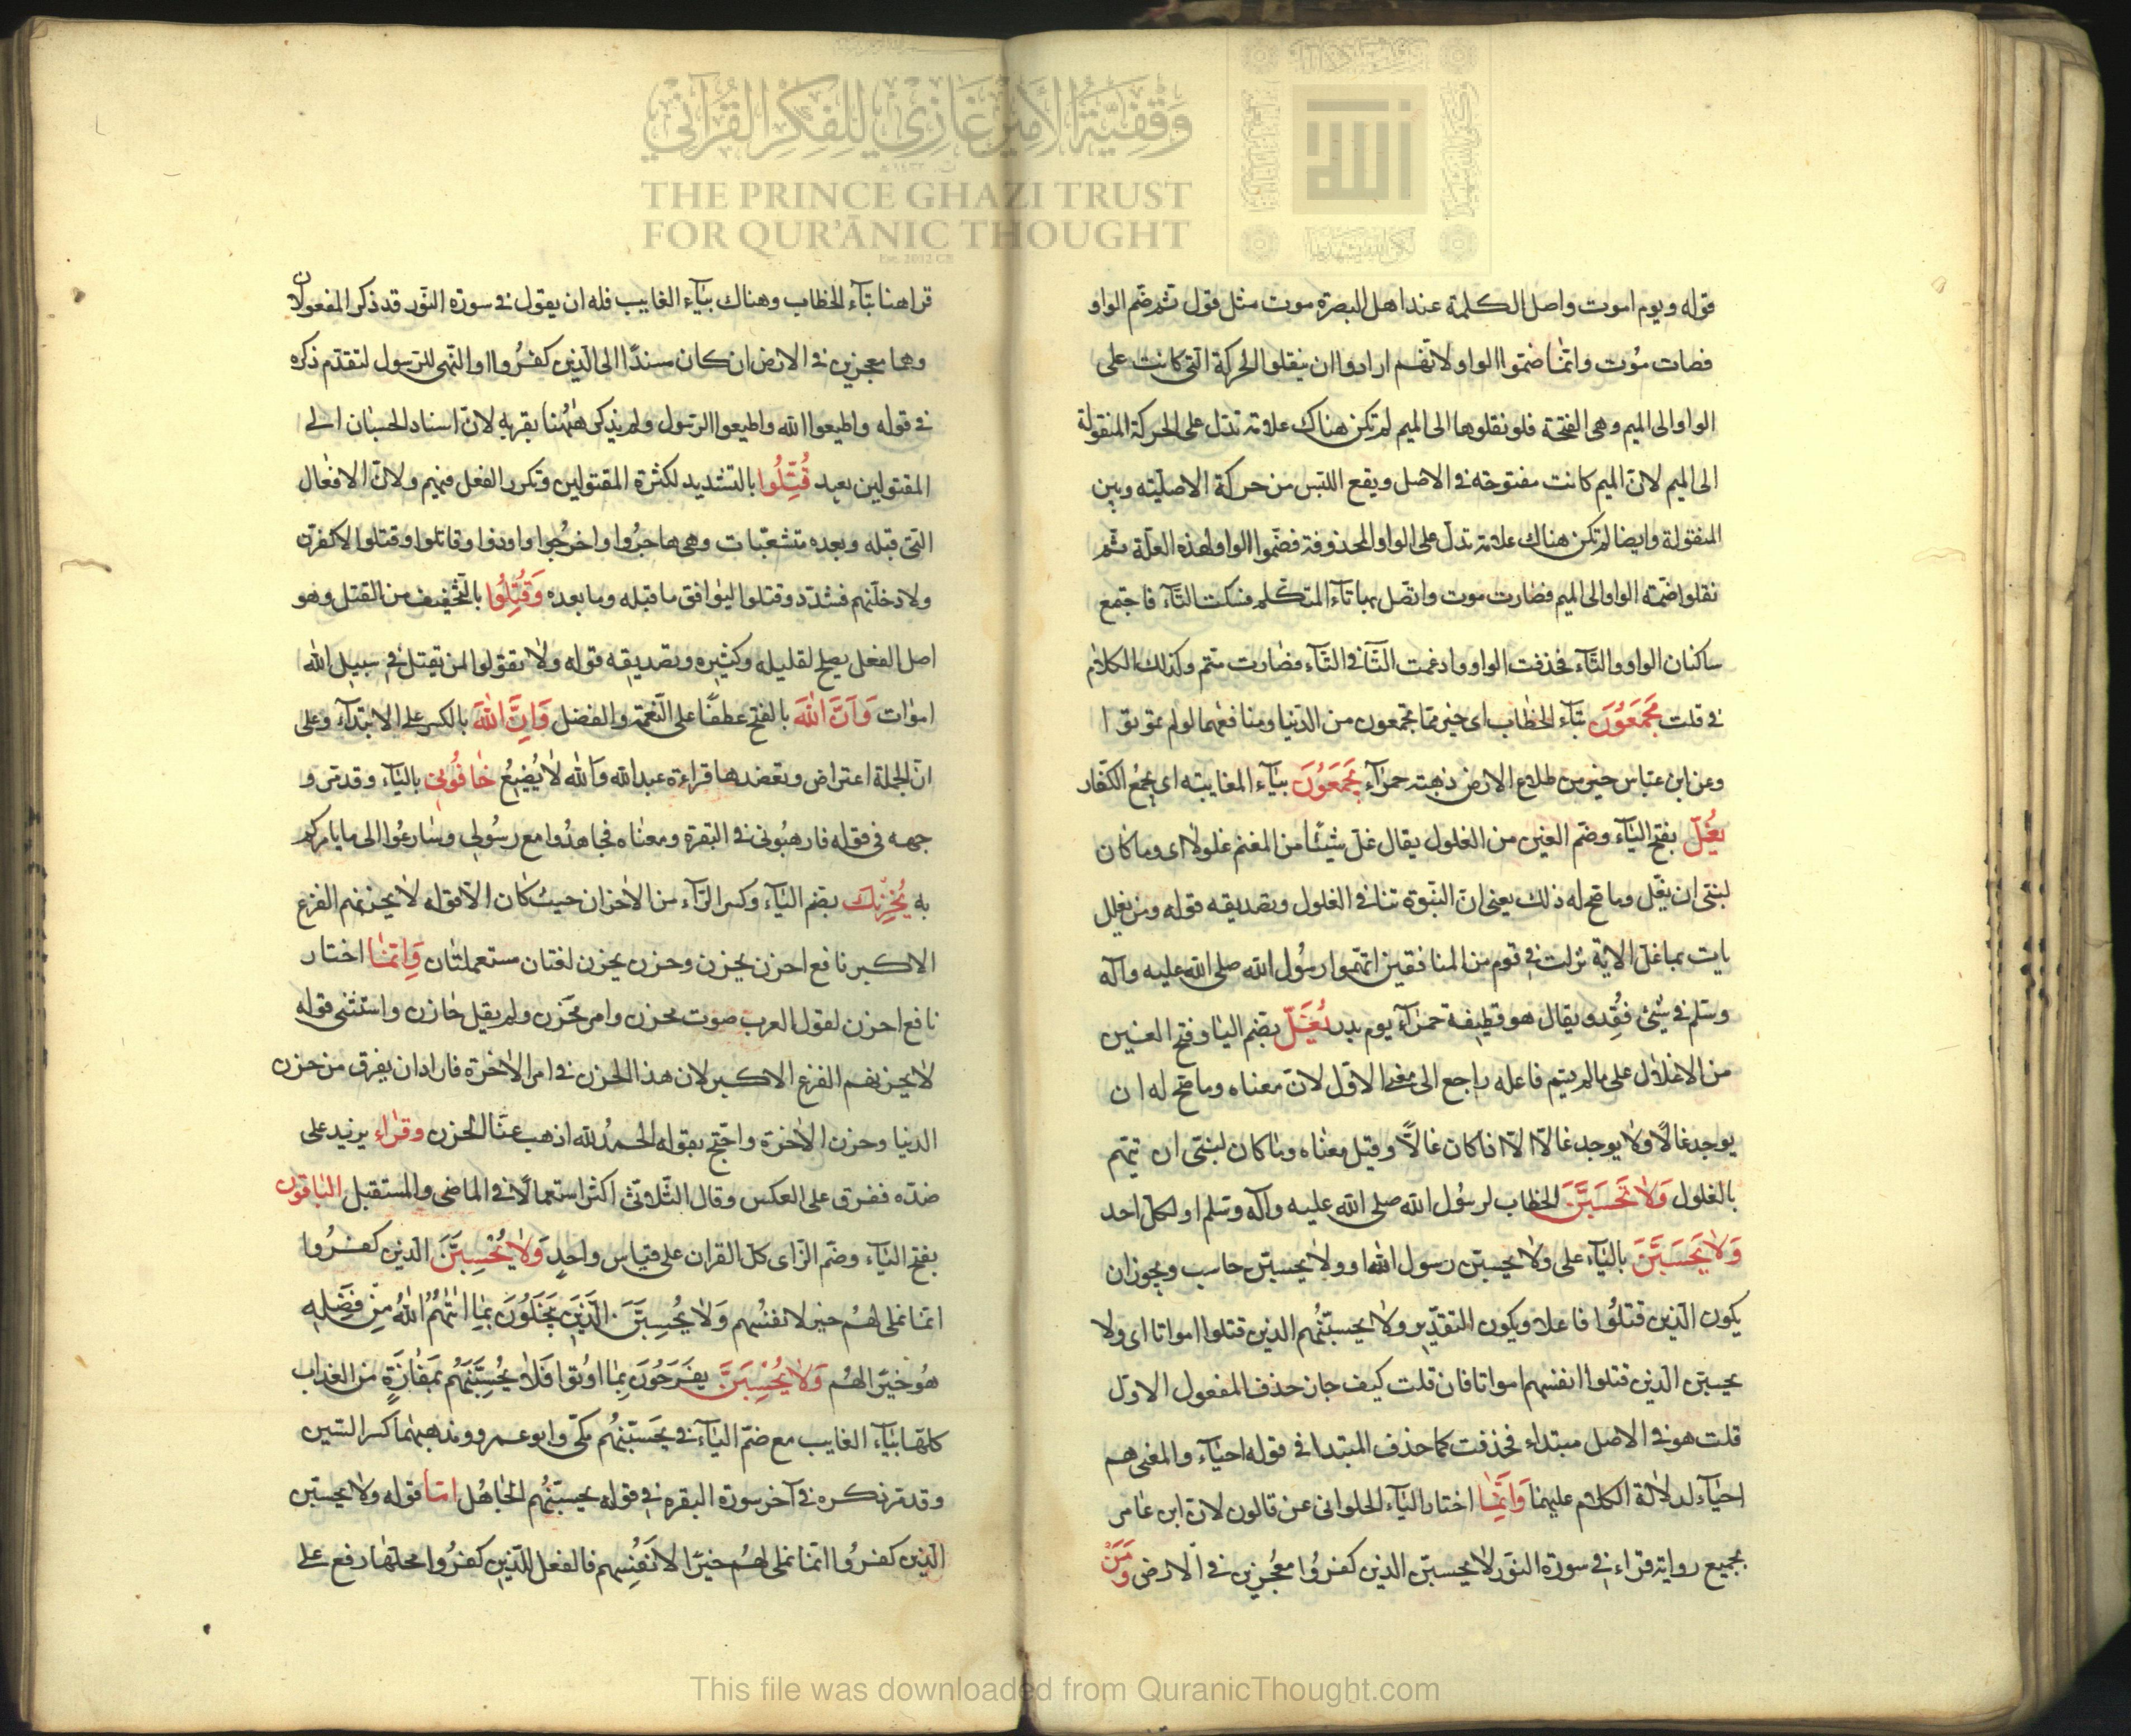 وقفية الأمير غازي للفكر القرآني
THE PRINCE GHAZI TRUST
FOR QUR'ĀNIC THOUGHT
Est. 2012 CE
الله
قوله ويوم اموت واصل الكلمة عند اهل البصرة موت مثل قول ثم ضم الواو
فصات مُوت وانما ضموا الواو لانهم ارادوا ان ينقلوا الحركة التى كانت على
الواو الى الميم وهى الفتحة فلو نقلوها الى الميم لم تكن هناك علامة تدل على الحركة المنقولة
الى الميم لان الميم كانت مفتوحة فى الاصل ويقع اللبس من حركة الاصليته وبين
المنقولة وايضا لم تكن هناك علامة تدل على الواو المحذوفة فضموا الواو لهذه العلة ثم
نقلوا ضمته الواو الى الميم فصارت موت واتصل بها تاء المتكلم فسكنت التاء فاجتمع
ساكنان الواو والتاء فحذفت الواو وادغمت التا فى التاء فصارت متم وكذلك الكلام
فى قلت تَجْمَعُونَ بتاء الخطاب اى خير مما تجمعون من الدنيا ومنافعهما لو لم تموتوا
وعن ابن عباس خير من طلاع الارض ذهبته حمراء يَجْمَعُونَ بياء المغايبته اى يجمع الكفار
يَغُلَّ بفتح الياء وضم الغين من الغلول يقال غل شيئا من المغنم غلولا اى وما كان
لنبى ان يغل وما صح له ذلك يعنى ان النبوة تنافى الغلول وتصديقه قوله ومن يغلل
يات بما غل الاية نزلت فى قوم من المنافقين اتهموا رسول الله صلى الله عليه وآله
وسلم فى شئ فُقِد ويقال هو قطيفة حمراء يوم بدر يُغَلّ بضم اليا وفتح الغين
من الاغلال على مالم يتم فاعله راجع الى معنى الاول لان معناه وما صح له ان
يوجد غالًا ولا يوجد غالا الا اذا كان غالًا وقيل معناه وما كان لنبى ان يتهم
بالغلول وَلَا تَحْسَبَنَّ الخطاب لرسول الله صلى الله عليه وآله وسلم او لكل احد
وَلَا يَحْسَبَنَّ بالياء على ولا يحسبن رسول الله او ولا يحسبن حاسب ويجوز ان
يكون الذين قتلوا فاعلا ويكون التقدير ولا يحسبنهم الذين قتلوا امواتا اى ولا
يحسبن الذين قتلوا انفسهم امواتا فان قلت كيف جاز حذف المفعول الاول
قلت هو فى الاصل مبتداء فحذفت كما حذف المبتدا فى قوله احياء والمعنى هم
احياء لدلالة الكلام عليهما وَانما اختار الياء الحلوانى عن قالون لان ابن عامر
بجميع رواية قراء فى سورة النور لا يحسبن الذين كفروا معجزين فى الارض وَمَنْ
قراهنا بتاء الخطاب وهناك بياء الغايب فله ان يقول فى سورة النور قد ذكر المفعولان
وهما معجزين فى الارض ان كان مسندًا الى الذين كفروا او النهى للرسول لتقدم ذكره
فى قوله واطيعوا الله واطيعوا الرسول ولم يذكر ههنا بقربه لان اسناد الحسبان الى
المقتولين بعيد قُتِّلُوا بالتشديد لكثرة المقتولين وتكرر الفعل فيهم ولان الافعال
التى قبله وبعده متشعبات وهى هاجروا واخرجوا واوذوا وقاتلوا وقتلوا لاكفرن
ولادخلنهم فشدد وقتلوا ليوافق ما قبله وما بعده وَقُتِلُوا بالتخفيف من القتل وهو
اصل الفعل يصلح لقليله وكثيره وتصديقه قوله ولا تقولوا لمن يقتل فى سبيل الله
اموات وَاَنَّ اللهَ بالفتح عطفًا على النعمة والفضل وَاِنَّ اللهَ بالكسر على الابتداء وعلى
ان الجملة اعتراض وتعضدها قراءة عبد الله والله لا يُضِيعُ خَافُونِى بالياء وقد مر و
جهه فى قوله فارهبونى فى البقرة ومعناه فجاهدوا مع رسولى وسارعوا الى ما يامركم
به يُحْزِنْكَ بضم الياء وكسر الزاء من الاحزان حيث كان الا قوله لا يحزنهم الفزع
الاكبر نافع احزن يحزن وحزن يحزن لغتان مستعملتان وَاِنَّمَا اختار
نافع احزن لقول العرب صوت محزن وامر محزن ولم يقيل حازن واستثنى قوله
لا يحزنهم الفزع الاكبر لان هذا الحزن فى امر الاخرة فاراد ان يفرق من حزن
الدنيا وحزن الاخرة واحتج بقوله الحمد لله اذهب عنا الحزن وقراء يزيد على
ضده ففرق على العكس وقال الثلاثى اكثر استعمالًا فى الماضى والمستقبل الباقون
بفتح الياء وضم الزاى كل القران على قياس واحدٍ وَلَا يَحْسِبَنَّ الذين كفروا
انما نملى لهم خير لانفسهم وَلَا يَحْسِبَنَّ الَّذِينَ يَبْخَلُونَ بِمَا اٰتٰهُمُ اللهُ مِنْ فَضْلِهِ
هو خيرا لهم وَلَا يَحْسِبَنَّ يفرحون بما اوتوا فَلَا يَحْسِبَنَّهُمْ بِمَفَازَةٍ من العذاب
كلها بياء الغايب مع ضم الياء فى يحسبنهم مكى وابو عمرو ومذهبهما كسر السين
وقد مر ذكره فى آخر سورة البقرة فى قوله يحسبهم الجاهل اما قوله ولا يحسبن
الذين كفروا انما نملى لهم خيرًا لانفسهم فالفعل للذين كفروا محلها رفع على
This file was downloaded from QuranicThought.com